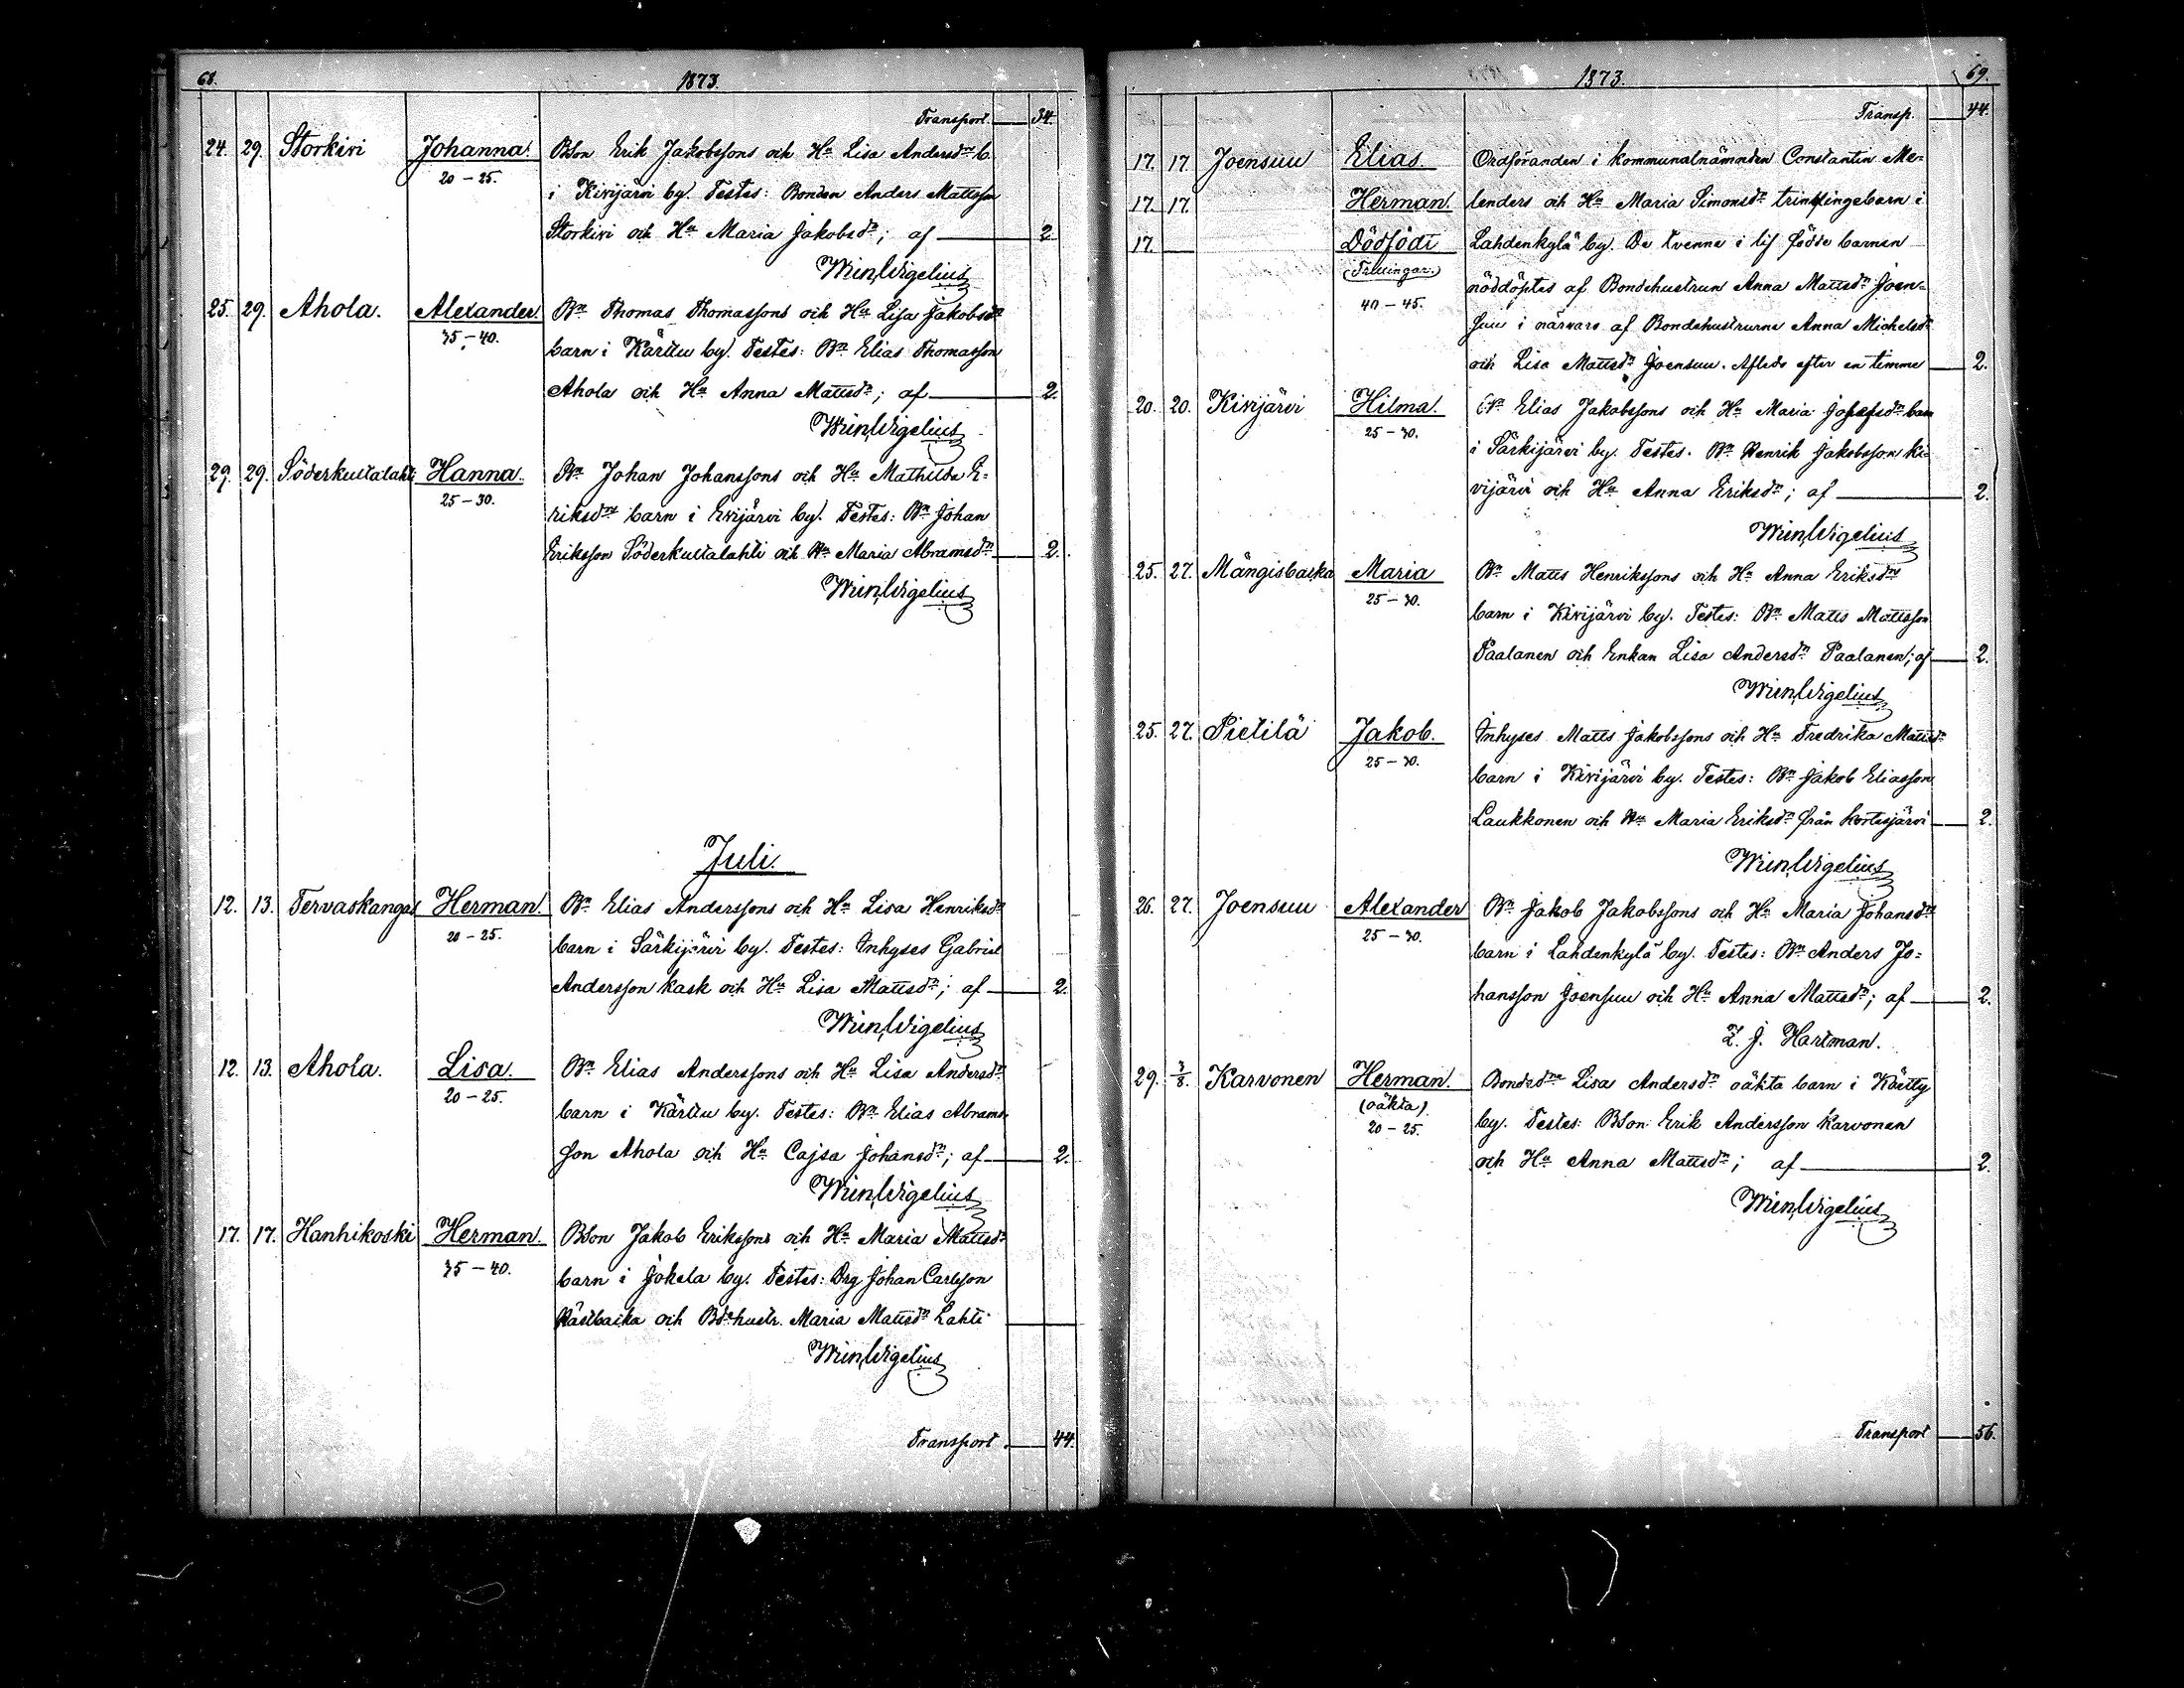 68. 1873.
Transport. 34.
24. 29. Storkivi Johanna. BSon Erik Jakobssons och Hu Lisa Andersdrs b.
20-25. i Kivijärvi by. Testes: Bonden Anders Mattsson
Storkivi och Hu Maria Jakobsdr; af 2.
Wm Wigelius
25. 29. Ahola. Alexander. Bn Thomas Thomassons och Hu Lisa Jakobsdrs
35-40. barn i Kärttu by. Testes: Bn Elias Thomasson
Ahola och Hu Anna Mattsdr; af 2.
Wm Wigelius
29. 29. Söderkultalahti Hanna. Bn Johan Johanssons och Hu Mathilda E-
25-30. riksdrs barn i Evijärvi by. Testes: Bn Johan
Eriksson Söderkultalahti och Hu Maria Abramsdr 2.
Wm Wigelius
Juli.
12. 13. Tervaskangas Herman. Bn Elias Anderssons och Hu Lisa Henriksdrs
20-25. barn i Särkijärvi by. Testes: Inhyses Gabriel
Andersson Kask och Hu Lisa Mattsdr; af 2.
Wm Wigelius
12. 13. Ahola. Lisa. Bn Elias Anderssons och Hu Lisa Andersdrs
20-25. barn i Kärttu by. Testes: Bn Elias Abrams-
son Ahola och Hu Cajsa Johansdr; af 2.
Wm Wigelius
17. 17. Hanhikoski Herman. BSon Jakob Erikssons och Hu Maria Mattsdrs
35-40. barn i Jokela by. Testes: Drg Johan Carlsson
Wästbacka och Bdehustr. Maria Mattsdr Lahti
Wm Wigelius
Transport 44.
1873. 69.
Transp. 44.
17. 17. Joensuu Elias. Ordföranden i kommunalnämnden Constantin Me-
17. 17. Herman. lenders och Hu Maria Simonsdrs trillingebarn i
17. Dödfödt Lahdenkylä by. De tvenne i lif födde barnen
(Trillingar.) nöddöptes af Bondehustrun Anna Mattsdr Joen-
40-45. suu i närvaro af Bondehustrurna Anna Michelsdr
och Lisa Mattsdr Joensuu. Afledo efter en timme 2.
20. 20. Kivijärvi Hilma. Bn Elias Jakobssons och Hu Maria Josefsdrs barn
25-30. i Särkijärvi by. Testes. Bn Henrik Jakobsson Ki-
vijärvi och Hu Anna Eriksdr; af 2.
Wm Wigelius
25. 27. Mängisbacka Maria Bn Matts Henrikssons och Hu Anna Eriksdrs
25-30. barn i Kivijärvi by. Testes: Bn Matts Mattsson
Paalanen och Enkan Lisa Andersdr Paalanen; af 2.
Wm Wigelius
25. 27. Pietilä Jakob. Inhyses Matts Jakobssons och Hu Fredrika Mattsdrs
25-30. barn i Kivijärvi by. Testes: Bn Jakob Eliasson
Laukkonen och Hu Maria Eriksdr från Kortesjärvi 2.
Wm Wigelius
26. 27. Joensuu Alexander Bn Jakob Jakobssons och Hu Maria Johansdrs
25-30. barn i Lahdenkylä by. Testes: Bn Anders Jo-
hansson Joensuu och Hu Anna Mattsdr; af 2.
Z. J. Hartman.
29. 3/8. Karvonen Herman. Bondedrs Lisa Andersdrs oäkta barn i Käetty
(oäkta) by. Testes: BSon Erik Andersson Karvonen
20-25. och Hu Anna Mattsdr; af 2.
Wm Wigelius
Transport 56.